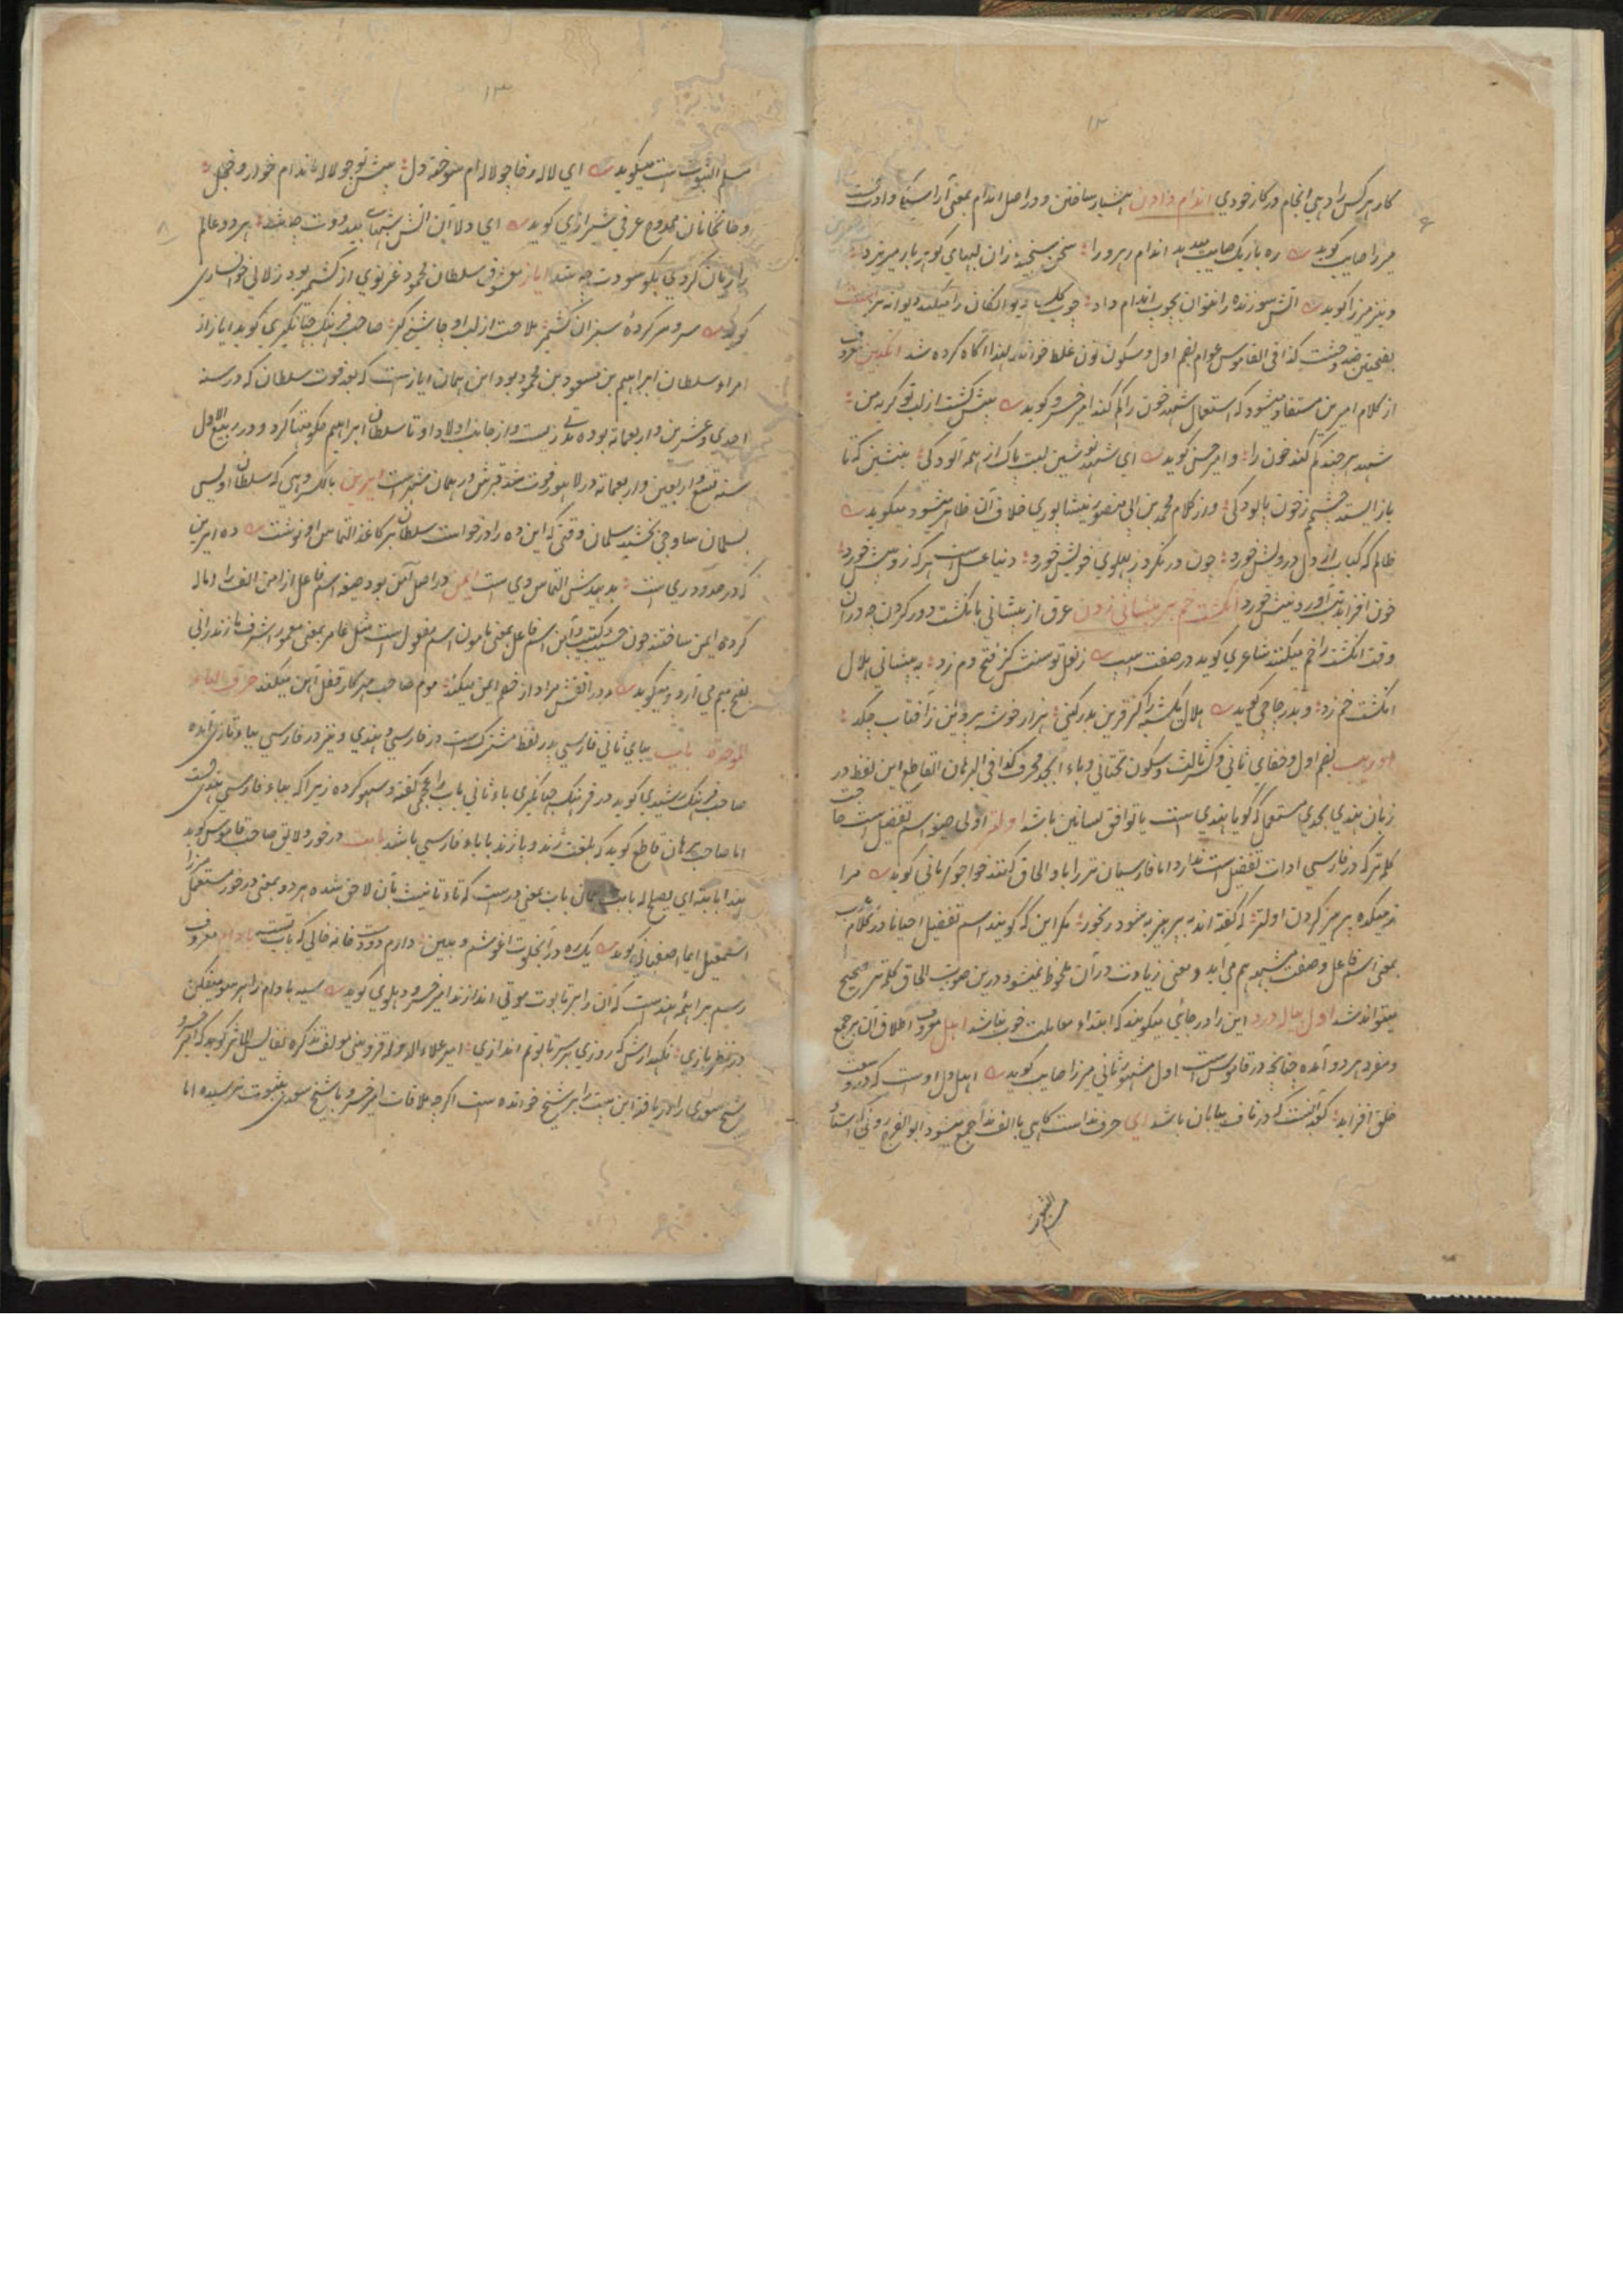 ۱۲
کار هر کس را دهی انجام در کار خودی اندام دادن هشیار ساختن و در اصل اندام بمعنی آراستگی و
میرزا صایب گوید ره باریک صایب میدهد اندام رهرو را سخن سنجیده زان لبهای گوهربار میریزد
و نیز میرزا گوید آتش سوزنده را نتوان بچوب اندام داد چوب گل دیوانگان را میکند دیوانه تر
بضمتین ضد وحشت کذا فی القاموس عوام بضم اول و سکون نون غلط خوانند لهذا آگاه کرده شد انگبین معروف
از کلام امیرین مستفاد میشود که استعمال شهد خون را کم کند امیر خسرو گوید بیش گشت از لب تو گریه من
شهد هر چند کم کند خون را و امیر حسن گوید ای شهد نوشین لبت پاک از همه آلودگی بنشین که تا
باز ایستد چشم ز خون پالودگی و از کلام محمد بن ابی منصور نیشاپوری خلاف آن ظاهر میشود میگوید
ظالم که کباب از دل درویش خورد چون در نگرد ز پهلوی خویش خورد دنیا عسل است هر که زو بیش خورد
خون افزاید تب آورد نیش خورد انگشت خم بر پیشانی زدن عرق از پیشانی بانگشت دور کردن چه دران
وقت انگشت را خم میکنند شاعری گوید در صفت اسپ ز نعل توسنش کز فتح دم زد به پیشانی هلال
انگشت خم زد و بدر چاچی گوید هلال یکشبه را گر قرین بدر کنی هزار خوشه پروین ز آفتاب چکد
بضم اول و خفای ثانی و کسر ثالث و سکون تحتانی و باء ابجد محرف کذا فی البرهان القاطع این لفظ در
زبان هندی بحدی مستعمل که گویا هندی است یا توافق لسانین باشد اولتر اولی صیغه اسم تفضیل است
کلمه تر که در فارسی ادات تفضیل است ندارد اما فارسیان تر را باو الحاق کنند خواجو کرمانی گوید مرا
ز میکده پرهیز کردن اولتر که گفته اند به پرهیز به شود رنجور مگر این که گویند اسم تفضیل احیانا در کلام عرب
بمعنی اسم فاعل و صفت مشبهه هم می آید و معنی زیادت در آن ملحوظ نمیشود درین صورت الحاق کلمه تر صحیح
میتواند شد اول پیاله درد این را در جائی میگویند که ابتداء معاملت خوب نباشد اهل معروف اطلاق آن بر جمع
و مفرد هر دو آمده چنانچه در قاموس است اول مشهور ثانی میرزا صایب گوید اهل دل اوست که در وسعت
خلق افزاید گوید آنست که در ناف بیابان باشد ای حرف نداست گاهی با الف ندا جمع میشود ابوالفرج رونی که استاد
۱۳
مسلم الثبوت است میگوید ای لاله رخا چو لاله ام سوخته دل پیش تو چو لاله مانده ام خوار و خجل
و خانخانان ممدوح عرفی شیرازی گوید ای دلا این آتش
را زیان کردی بگو سودت چه شد ایاز معشوق سلطان محمود غزنوی از کشمیر بود زلالی خوانساری
گوید سر و سر کردهٔ سبزان کشمیر ملاحت از لب او چاشنی گیر صاحب فرهنگ جهانگیری گوید ایاز از
امراء سلطان ابراهیم بن مسعود بن محمود بود این همان ایاز است که بعد فوت سلطان که در سنه
احدی و عشرین و اربعمائه بوده مدتی زیست و از جانب اولاد او تا سلطان ابراهیم حکومتها کرد و در ربیع الاول
سنه تسع و اربعین و اربعمائه در لاهور فوت شد قبرش در همان شهر است ایرین بالکسر دهی که سلطان اویس
بسلمان ساوجی بخشید سلمان وقتی که این ده را درخواست سلطان بر کاغذ التماس او نوشت ده ایرین
که در حدود ری است بدهیدش التماس وی است ایمن در اصل آمن بود صیغه اسم فاعل از امن الف را اماله
کرده ایمن ساختند چون حسیب و کتیب و آمن اسم فاعل بمعنی مامون اسم مفعول است مثل عامر بمعنی معمور اشرف مازندرانی
بفتح میم می آرد و میگوید در آتش مرا از خصم ایمن میکند موم صاحب میر کار قفل آهن میکند حرف الباء
الموحدة باب ببای ثانی فارسی پدر لفظ مشترک است در فارسی و هندی و نیز در فارسی بباء تازی آمده
صاحب فرهنگ رشیدی گوید در فرهنگ جهانگیری باء ثانی باب را عجمی گفته و سهو کرده زیرا که بباء فارسی هندی است
اما صاحب برهان قاطع گوید که بلغت زند و پازند با باء فارسی باشد بابت در خور و لایق صاحب قاموس گوید
هذا بابته ای یصلح له بابت همان باب بمعنی در است که تاء تانیث بآن لاحق شده هر دو بمعنی در خور مستعمل میرزا
اسمعیل ایما اصفهانی گوید یک ره در آ بخلوت آغوشم و ببین دارم دوست خانه خالی که بابتست بادام معروف
رسم براهمه هند است که آن را بر تابوت موتی اندازند امیر خسرو دهلوی گوید سیه بادام را هر سو میفکن
در نظربازی نگهدارش که روزی بر سر تابوتم اندازی امیر علاء الدوله قزوینی مولف تذکره نفایس المآثر گوید که امیر خسرو
شیخ سعدی را دریافته این بیت را بر شیخ خوانده است اگرچه ملاقات امیر خسرو با شیخ سعدی بثبوت نرسیده اما